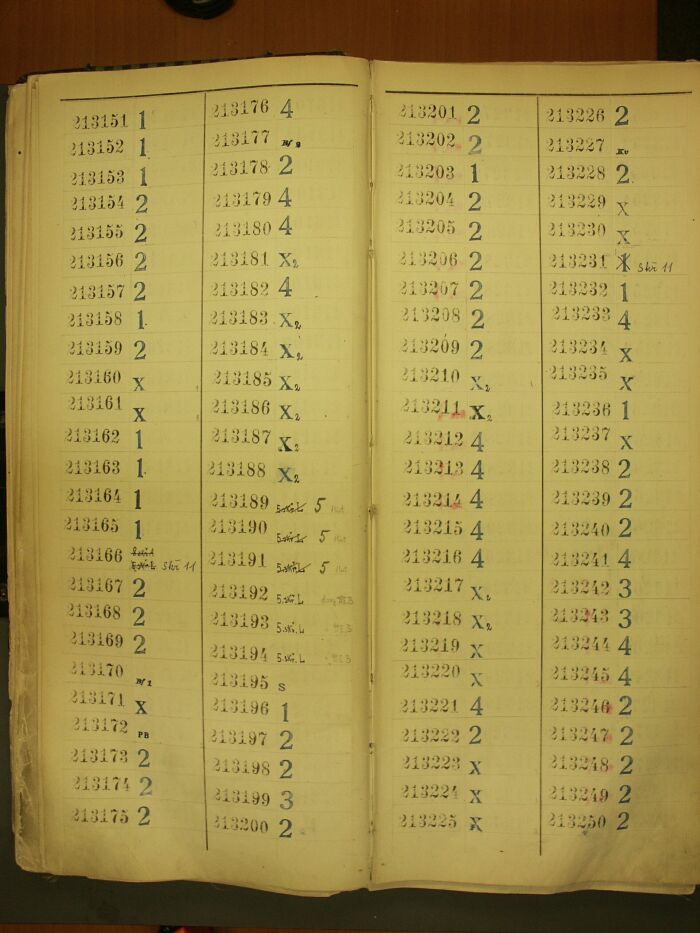 213151 1
213152 1
213153 1
213154 2
213155 2
213156 2
213157 2
213158 1.
213159 2
213160 X
213161 X
213162 1
213163 1.
213164 1
213165 1
213166 Skř 11
213167 2
213168 2
213169 2
213170
213171 X
213172 PB
213173 2
213174 2
213175 2
213176 4
213177
213178 2
213179 4
213180 4
213181 X2
213182 4
213183 X2
213184 X2
213185 X2
213186 X2
213187 X2
213188 X2
213189 5
213190 5
213191 5
213192 5.skř.L
213193 5.skř.L
213194 5.skř.L
213195 s
213196 1
213197 2
213198 2
213199 3
213200 2
213201 2
213202 2
213203 1
213204 2
213205 2
213206 2
213207 2
213208 2
213209 2
213210 X2
213211 X2
213212 4
213213 4
213214 4
213215 4
213216 4
213217 X2
213218 X2
213219 X
213220 X
213221 4
213222 2
213223 X
213224 X
213225 X
213226 2
213227
213228 2
213229 X
213230 X
213231 Skř 11
213232 1
213233 4
213234 X
213235 X
213236 1
213237 X
213238 2
213239 2
213240 2
213241 4
213242 3
213243 3
213244 4
213245 4
213246 2
213247 2
213248 2
213249 2
213250 2